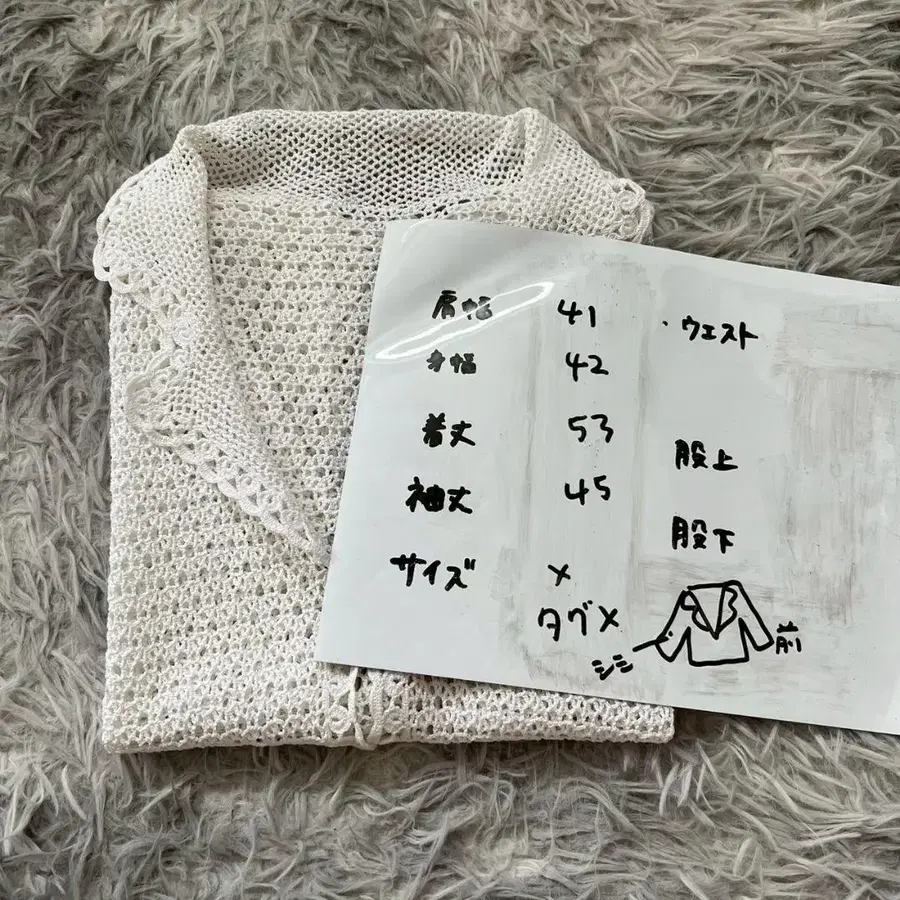 肩幅 41
身幅 42
着丈 53
袖丈 45
サイズ ×
タグ×
・ウエスト
股上
股下
前
シミ